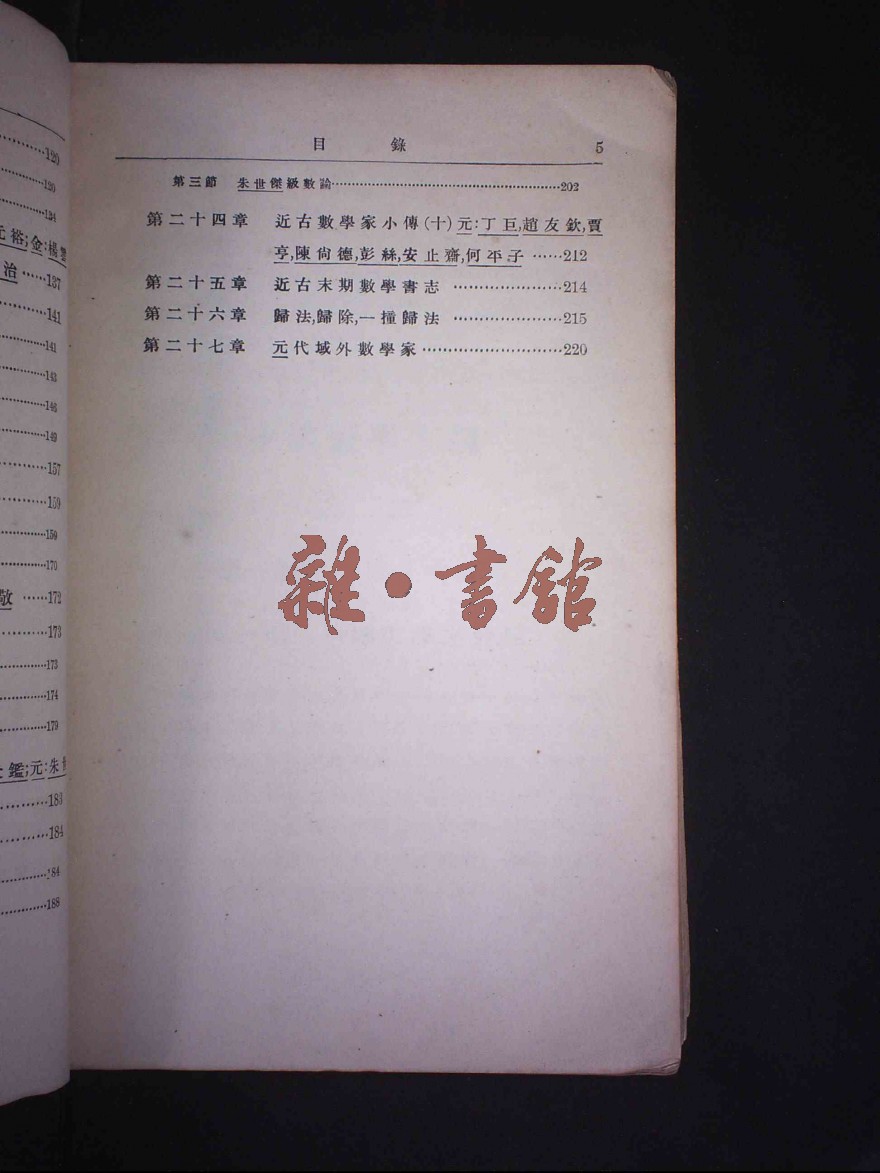 120
120
124
元裕;金:楊
治……137
141
141
143
146
149
157
159
159
170
敬……172
173
173
174
179
鑑;元:朱世
183
184
184
188
目 錄 5
第三節 朱世傑級數論……202
第二十四章 近古數學家小傳(十)元:丁巨,趙友欽,賈
亨,陳尙德,彭絲,安止齋,何平子……212
第二十五章 近古末期數學書志……214
第二十六章 歸法,歸除,一撞歸法……215
第二十七章 元代域外數學家……220
雜·書館